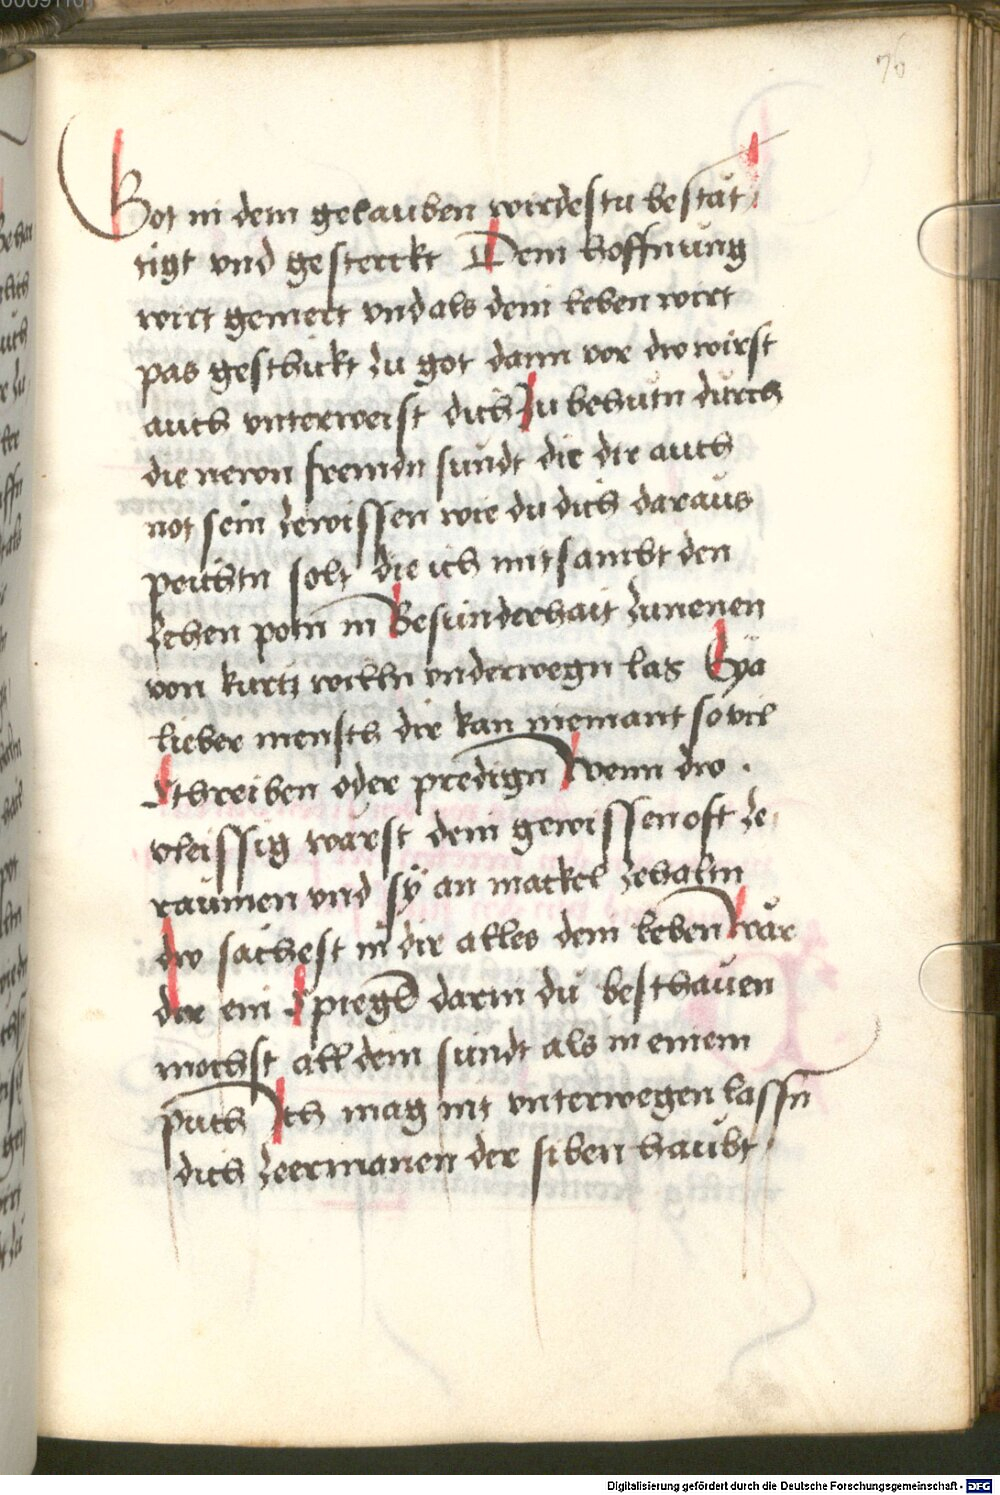 76
Got in dem gelauben wirdestu bestät
tigt vnd gesterckt Dein hoffnung
wirt gemert vnd als dein leben wirt
pas geschickt zu got dann vor dw wirst
auch vnterweist dich zu behutn durch
die newn fremdn sundt die dir auch
not sein zewissen wie du dich daraus
peichtn solt die ich mitsambt den
zehen potn in Besunderhait zunenen
von kurtz willn vnderwegn las Eya
lieber mensch dir kan niemant so vil
Schreiben oder predign Wenn dw
vleissig warst dein gewissen oft ze
raumen vnd sÿ an mackel zehaltn
dw sachest in dir alles dein leben Wär
dir ein Spiegel darin du beschauen
mochst all dein sundt als in einem
puch Ich mag nit vnterwegen lassn
dich zeermanen der siben haubt
Digitalisierung gefördert durch die Deutsche Forschungsgemeinschaft - DFG